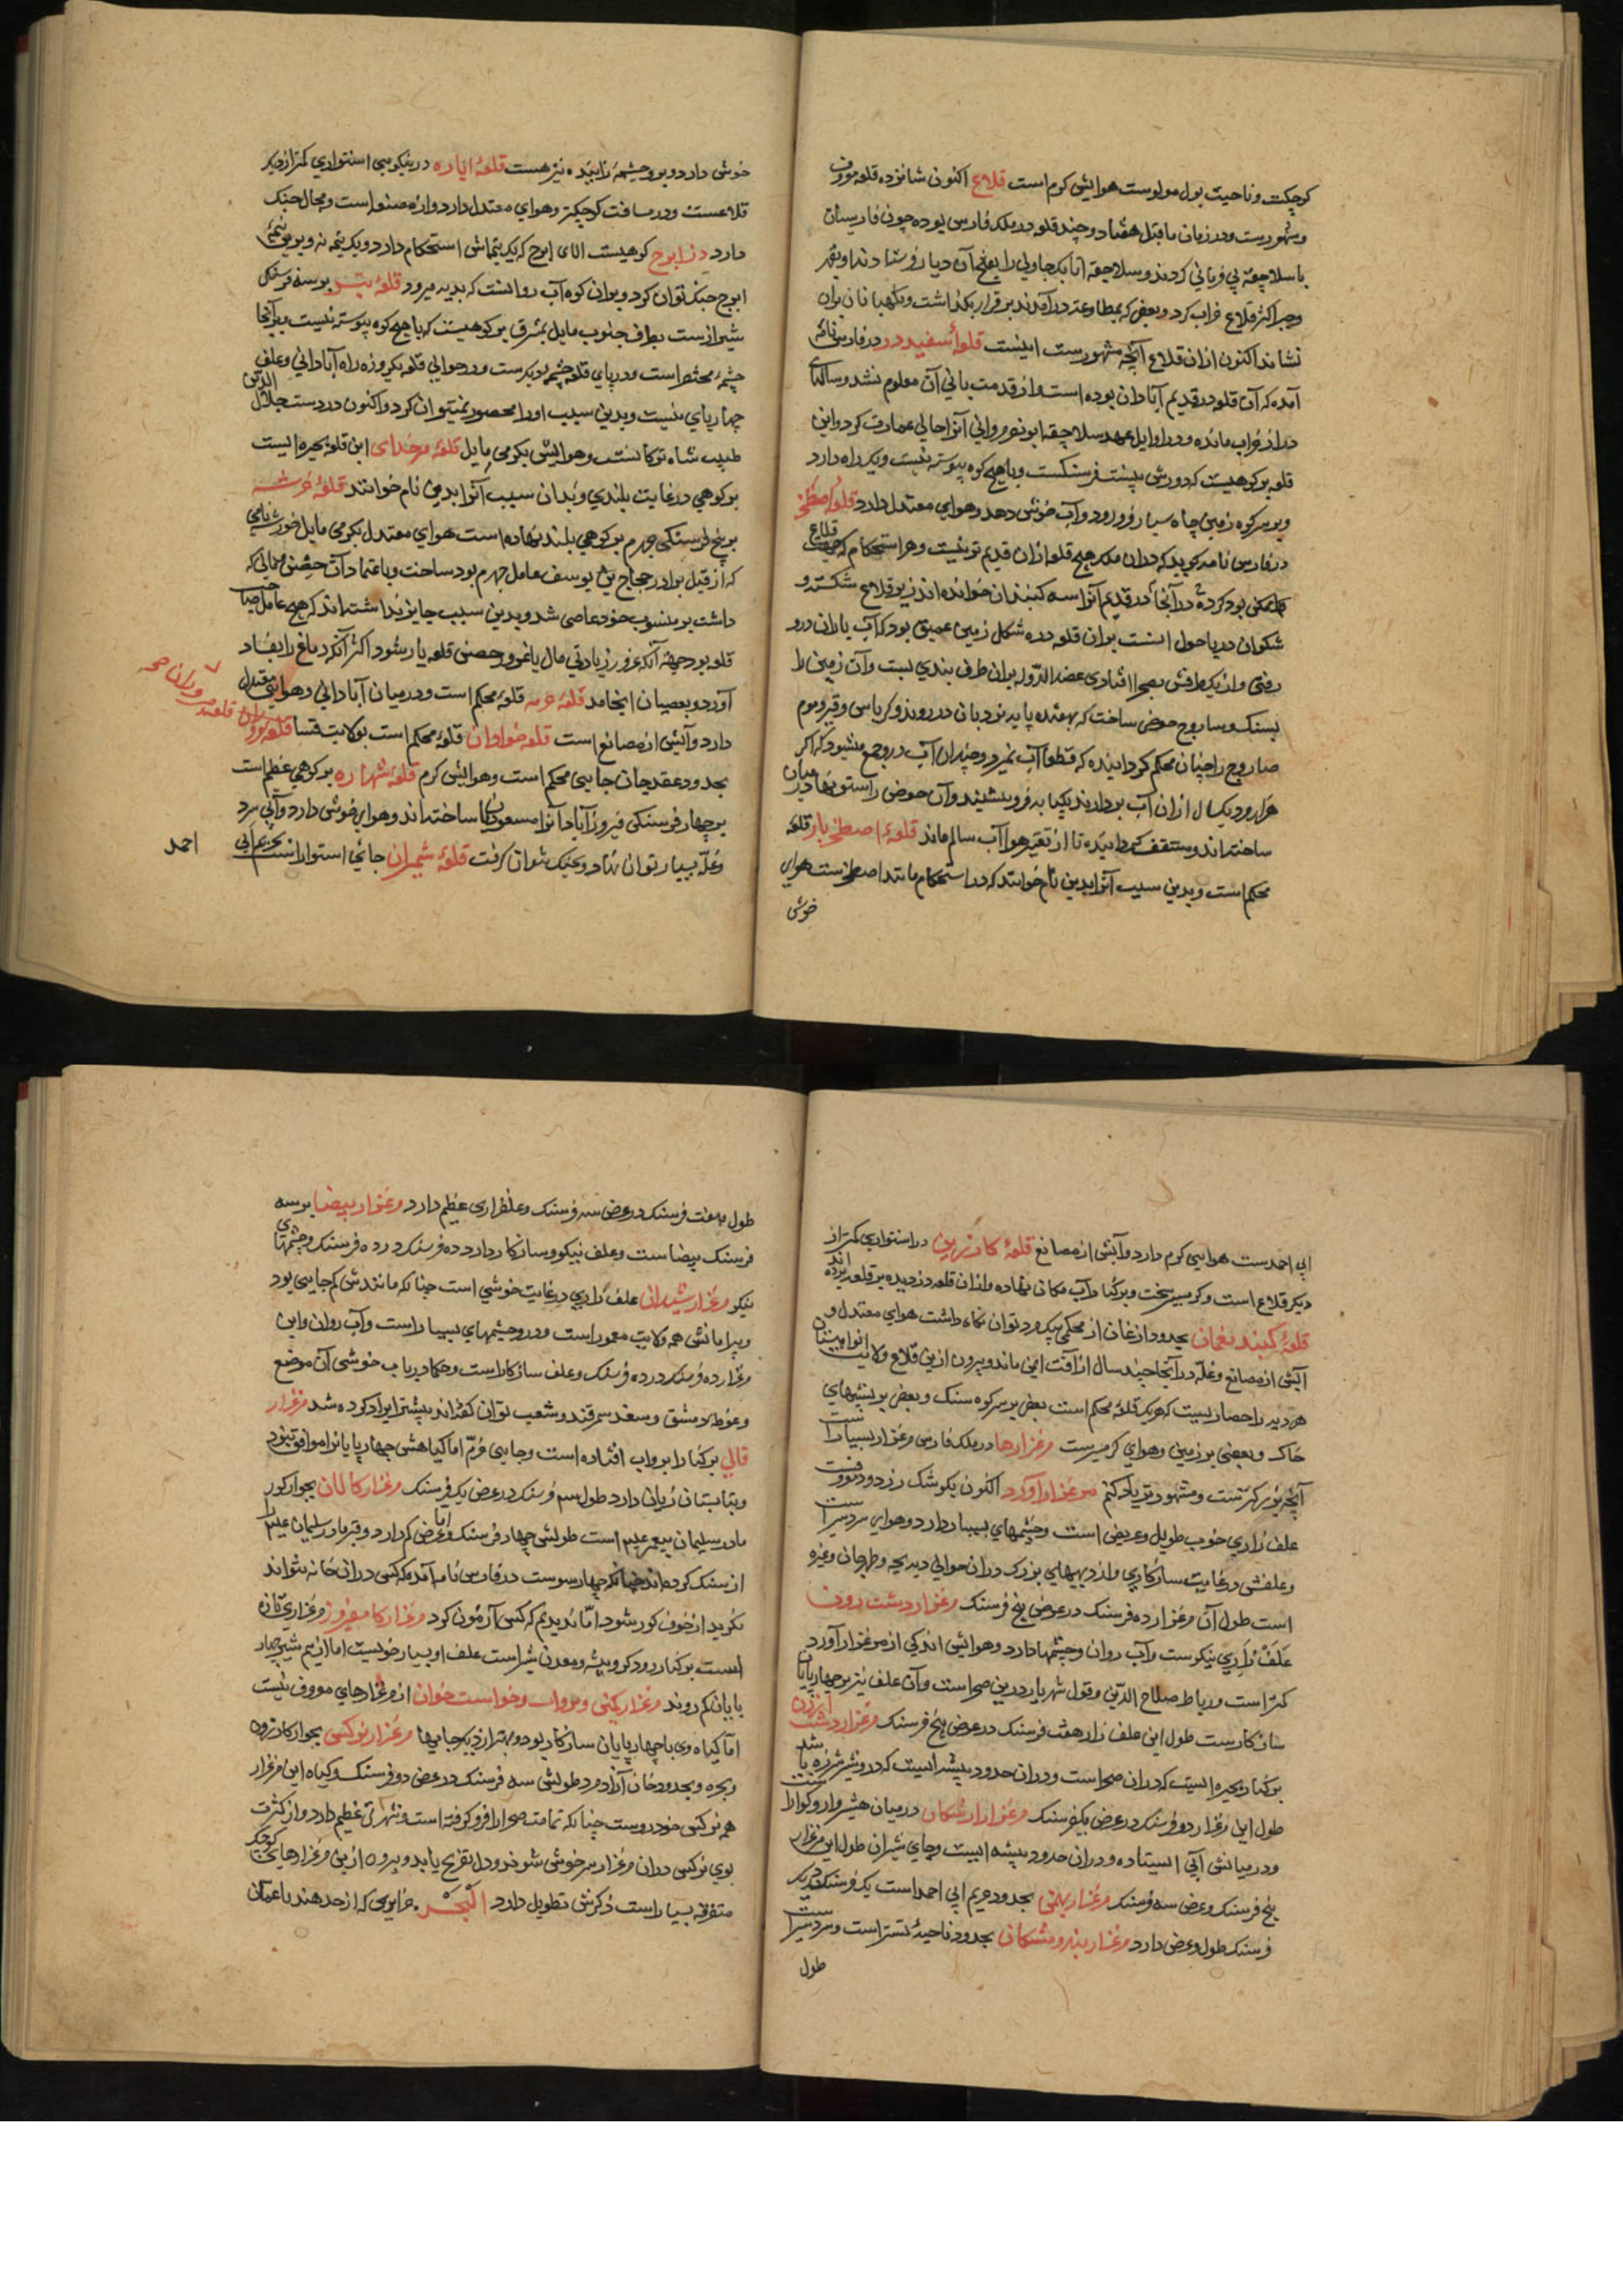 کوچکست و ناحیت بول مولوست هوایش گرم است قلاع اکنون شانزده قلعه معروف
و مشهورست و در زمان ماقبل هفتاد و چند قلعه در ملک فارس بوده چون فارسیان
با سلاجقه بی فرمانی کردند و سلاجقه اتابک جاولی را بفتح آن دیار فرستادند او بقهر
و جبر اکثر قلاع خراب کرد و بعضی که بمطاوعت درآمدند برقرار بگذاشت و نگهبانان بران
نشاند اکنون ازان قلاع آنچه مشهورست اینست قلعهٔ سفید در فارس نامه
آمده که آن قلعه در قدیم آبادان بوده است و از قدمت بانی آن معلوم نشد و سالهای
دراز خراب مانده و در اوایل عهد سلاجقه ابونصر آنرا عمارت کرد و این
قلعه بر کوهیست که دورش بیست فرسنگست و با هیچ کوه پیوسته نیست و یک راه دارد
و بر سر کوه زمین چاه بسیار فرو رود و آب خوش دهد و هوای معتدل دارد قلعهٔ اصطخر
در فارس نامه گوید که دران ملک هیچ قلعه ازان قدیم تر نیست و هر استحکام که جهت قلاع
ممکن بود کرده در آنجا در قدیم آنرا سه گنبدان خوانده اند زیر قلاع شکسته و
شکوان در پا حول است بران قلعه دره شکل زمین عمیق بود که آب باران درو
رفتی و از یک طرفش بصحرا افتادی عضد الدوله بران طرف بندی بست و آن زمین را
بسنگ و ساروج حوضی ساخت که بهفده پایه نردبان در روند و کرباس و قیر و موم
صاروج را چنان محکم گردانیده که قطعا آب نمیرد و چندان آب درو جمع میشود که اگر
هزار مرد یکسال ازان آب بردارند یکپایه فرو نشیند و آن حوض را ستونها در میان
ساخته اند و مسقف گردانیده تا از تغیر هوا آب سالم ماند قلعهٔ اصطخریار قلعه
محکم است و بدین سبب آنرا بدین نام خوانند که در استحکام مانند اصطخرست هوای
خوش
خوش دارد و برو چشمهٔ زاینده نیز هست قلعهٔ ایاره در نیکویی استواری کمتر از دیگر
قلاعست و در مسافت کوچکتر و هوای معتدل دارد و از مصنع است و مجال جنگ
دارد دز ابرج کوهیست بالای ابرج که یک نیمه اش استحکام دارد و یک نیمه نه و برو نیمهٔ
ابرج جنگ توان کرد و بران کوه آب روانست که بدیه میرود قلعهٔ بر سه فرسنگی
شیراز ست بطرف جنوب مایل بشرق بر کوهیست که با هیچ کوه پیوسته نیست و بر آنجا
چشمهٔ مختصر است و در پای قلعه چشمه دیگرست و در حوالی قلعه یکروزه راه آبادانی و علف
چهارپای نیست و بدین سبب او را محصور نمیتوان کرد و اکنون در دست جلال الدین
طبیب شاه ترکانست و هوایش بگرمی مایل قلعهٔ مرخدای این قلعه بحیره ایست
بر کوهی در غایت بلندی و بدان سبب آنرا بدین نام خوانند قلعهٔ خرشه
بر پنج فرسنگی جهرم بر کوهی بلند نهاده است هوای معتدل بگرمی مایل خورشه نامی
که از قبل برادر حجاج بن یوسف عامل جهرم بود ساخت و باعتماد آن حصن و مالی که
داشت بر منسوب خود عاصی شد و بدین سبب جایز نداشته اند که هیچ عامل صاحب
قلعه بود جهة آنکه غرور زیادتی مال با غرور حصنی قلعه یار شود اکثر آنکه دماغ را بفساد
آورد و بعصیان انجامد قلعهٔ خرمه قلعهٔ محکم است و در میان آبادانی و هوایی معتدل
دارد و آبش از مصانع است قلعه خوادان قلعهٔ محکم است بولایت فسا
بحدود عقدیجان جایی محکم است و هوایش گرم قلعهٔ شهاره بر کوهی عظیم است
بر چهار فرسنگی فیروزآباد آنرا مسعودیان ساخته اند و هوای خوش دارد و آبی سرد
و غله بسیار توان نهاد و بجنگ نتوان گرفت قلعهٔ شمیران جائی استوار است
احمد
ابی احمدست هوایی گرم دارد و آبش از مصانع قلعهٔ کارزین در استواری کمتر از
دیگر قلاع است و گرمسیر سخت و بر کنار آب مکانی نهاده و ازان قلعه دزدیده بر قلعه برده اند
قلعهٔ گنبد نعمان بحدود ارغان از محکمی بیکمرد توان نگاه داشت هوای معتدل و
آبش از مصانع و غله در آنجا چند سال از آفت ایمن ماند و بیرون ازین قلاع ولایت
هر دیه را حصاریست که هر یک قلعهٔ محکم است بعضی بر سر کوه سنگ و بعضی بر پشتهای
خاک و بعضی بر زمین و هوای گرمسیرست مرغزارها در ملک فارس مرغزار بسیارست
آنچه بزرگترست و مشهورتر یاد کنم مرغزار آورد اکنون بکوشک زرد معروفست
علف زاری خوب طویل و عریض است و چشمهای بسیار دارد و هوای سردسیرست
و علفش در غایت سازگاری و از دیههای بزرگ دران حوالی دیه بجه و طهرجان و غیره
است طول آن مرغزار ده فرسنگ در عرض پنج فرسنگ مرغزار دشت رون
علف زاری نیکوست و آب روان و چشمها دارد و هوایش اندکی از مرغزار آورد
کمتر است و رباط صلاح الدین و قول شهریار درین صحراست و آن علف نیز بر چهارپایان
سازگارست طول این علف زار هفت فرسنگ در عرض پنج فرسنگ مرغزار دشت ارزن
بر کنار بحیره ایست که دران صحراست و دران حدود بیشه ایست که درو شیر شرزه باشد
طول این مرغزار دو فرسنگ در عرض یکفرسنگ مرغزار در میان شیراز و کوار است
و در میانش آبی ایستاده و دران حدود بیشه ایست و جای شیران طول این مرغزار
پنج فرسنگ و عرض سه فرسنگ مرغزار بهمن بحدود مریم ابی احمد است یک فرسنگ در یک
فرسنگ طول و عرض دارد مرغزار بحدود ناحیهٔ تستر است و سردسیرست
طول
طول هفت فرسنگ در عرض سه فرسنگ و علفزاری عظیم دارد مرغزار بیضا بر سه
فرسنگ بیضاست و علف نیکو و سازگار دارد ده فرسنگ در ده فرسنگ و چشمهای
نیکو مرغزار شیدان علف زاری در غایت خوشی است چنانکه مانندش کم جایی بود
و پیرامانش همه ولایت معمور است و درو چشمهای بسیار است و آب روان و این
مرغزار ده فرسنگ در ده فرسنگ و علف سازگار است و حکما در باب خوشی آن موضع
و غوطهٔ دمشق و سغد سمرقند و شعب توان گفته اند پیشتر ایراد کرده شد مرغزار
قالی بر کنار آب پرواب افتاده است و جایی خرم اما گیاهش چهارپایانرا موافق نبود
و بتابستان زیان دارد طول سه فرسنگ در عرض یک فرسنگ مرغزار کالان بجوار گور
مادر سلیمان پیغمبر علیه است طولش چهار فرسنگ و اما عرض کم دارد و قبر مادر سلیمان علیه را
از سنگ کرده اند خانه چهارسوست در فارس نامه آمده که کسی دران خانه نتواند
نگرید از خوف کور شود اما ندیدم که کسی آزمون کرد مرغزار کامفیروز مرغزاری تازه
است بر کنار رود کر و بیشه و معدن شیر است علف او بسیار خوبست اما از بیم شیر چهار
پایان کم روند مرغزار کمین و پرواب و خواست خوان از مرغزارهای معروف نیست
اما گیاه وی با چهارپایان سازگار بود و بهتر از دیگر جایها مرغزار نرگس بجوار کازرون
و بجره و بحدود خان آزادمرد طولش سه فرسنگ در عرض دو فرسنگ و گیاه این مرغزار
همه نرگس خودروست چنانکه تمامت صحرا فرو گرفته است و شهرتی عظیم دارد و از کثرت
بوی نرگس دران مرغزار سر خوش شود و دل تفریح یابد و بیرون ازین مرغزارهای کوچک
متفرقه بسیار است ذکرش تطویل دارد البحر جزایری که از حد هند تا عمان